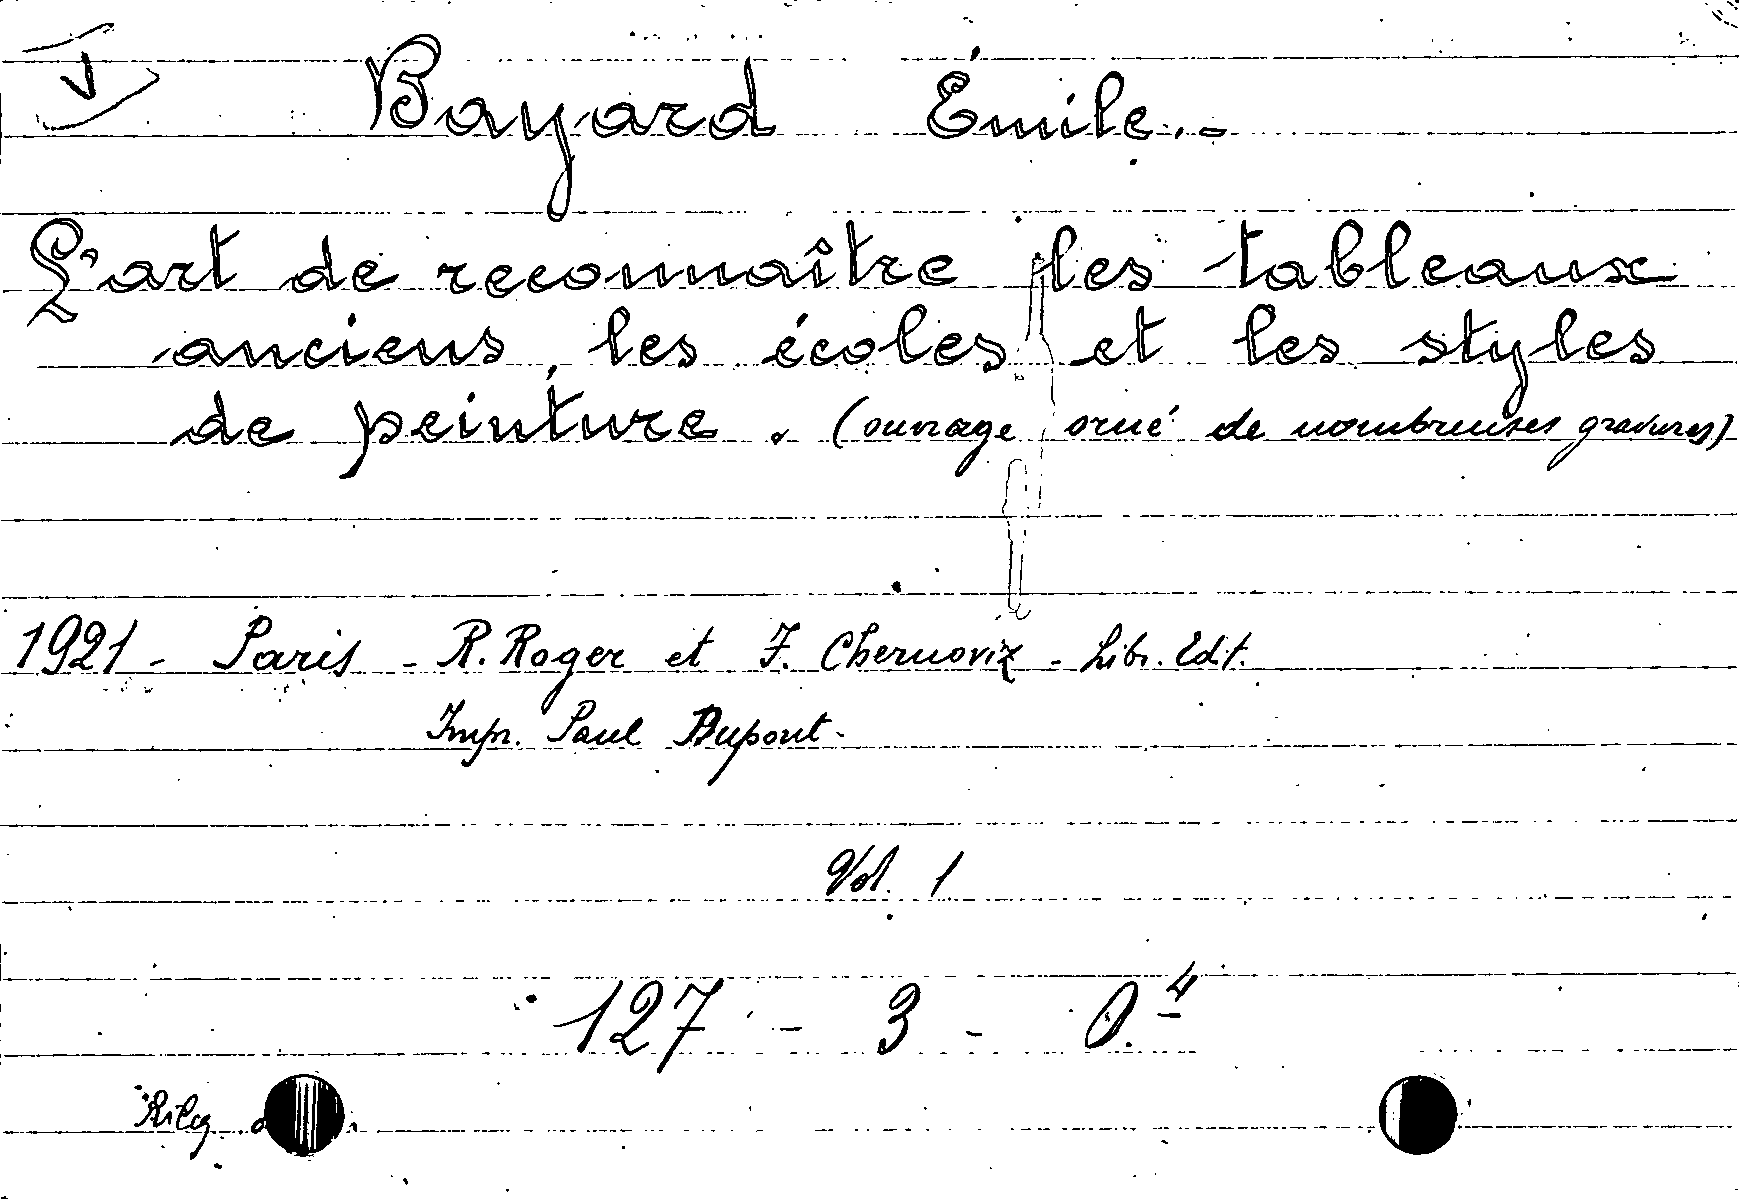 V
Bayard Émile.-
L'art de reconnaître les tableaux
anciens, les écoles et les styles
de peinture. (ouvrage orné de nombreuses gravures)
1921 - Paris - R. Roger et F. Chernoviz - Libr. Edit.
Impr. Paul Dupont -
Vol. 1
127 - 3 - O.4